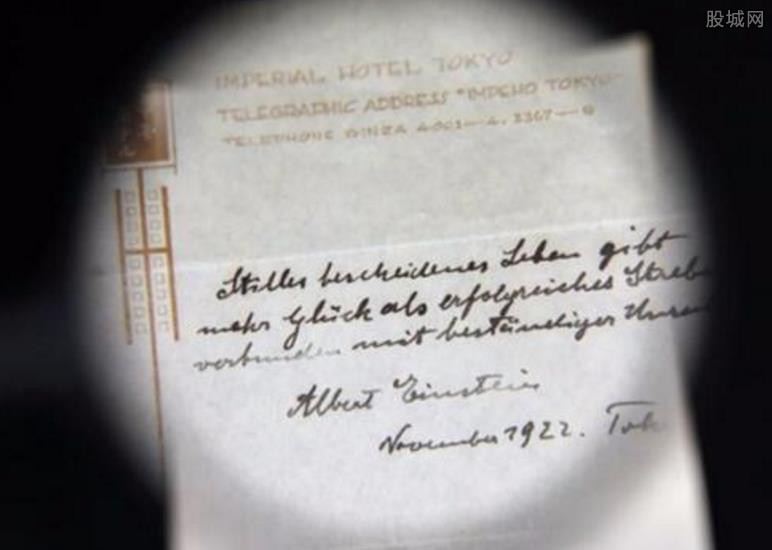 股城网
IMPERIAL HOTEL TOKYO
TELEGRAPHIC ADDRESS "IMPEHO TOKYO"
TELEPHONE GINZA
Stilles bescheidenes Leben gibt
mehr Glück als erfolgreiches Streb
verbunden mit beständiger Unru
Albert Einstein
November 1922. Tok